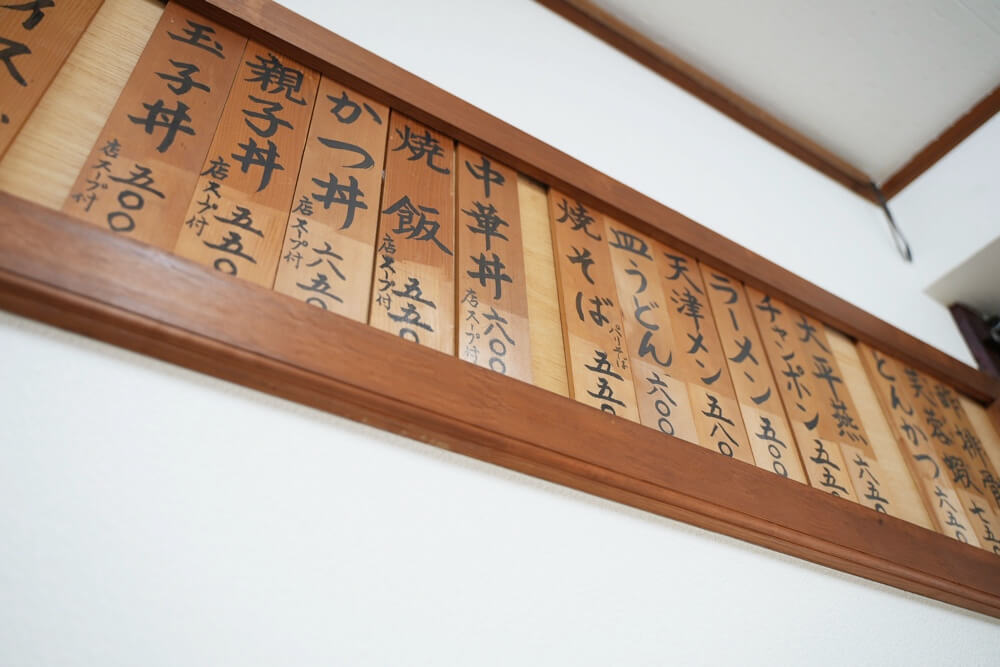 イス
玉子丼
五〇〇
店スープ付
親子丼
五五〇
店スープ付
かつ丼
六五〇
店スープ付
焼飯
五五〇
店スープ付
中華丼
六〇〇
店スープ付
焼そば
五五〇
皿うどん
六〇〇
天津メン
五八〇
ラーメン
五〇〇
チャンポン
五五〇
太平燕
六五〇
とんかつ
六五〇
芙蓉蝦
七五〇